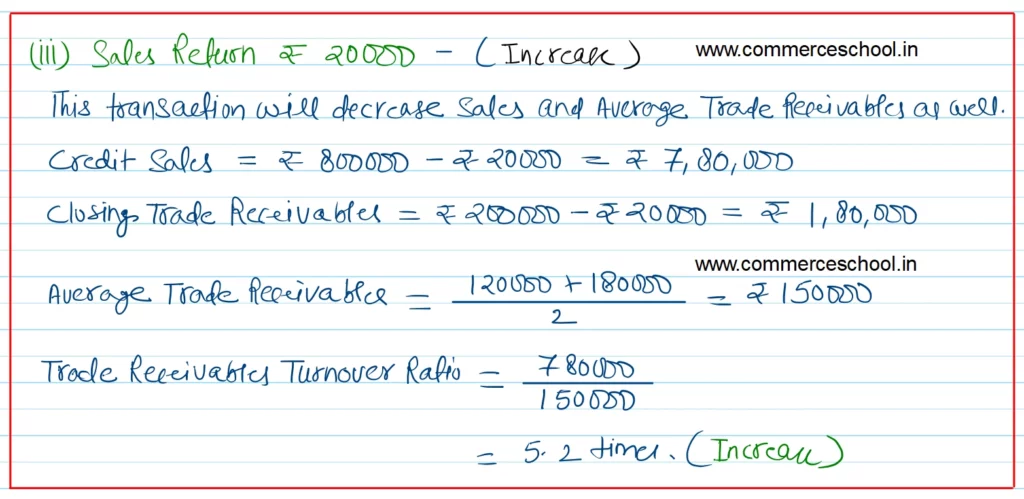 (iii) Sales Return ₹ 20000 - (Increase) www.commerceschool.in
This transaction will decrease Sales and Average Trade Receivables as well.
Credit Sales = ₹ 800000 - ₹ 20000 = ₹ 7,80,000
Closing Trade Receivables = ₹ 200000 - ₹ 20000 = ₹ 1,80,000
www.commerceschool.in
Average Trade Receivables = 120000 + 180000 / 2 = ₹ 150000
Trade Receivables Turnover Ratio = 780000 / 150000
= 5.2 times. (Increase)